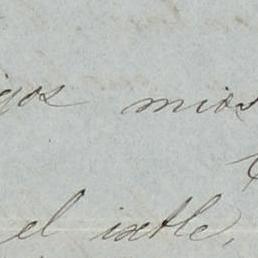 igos mios
el ixtle,